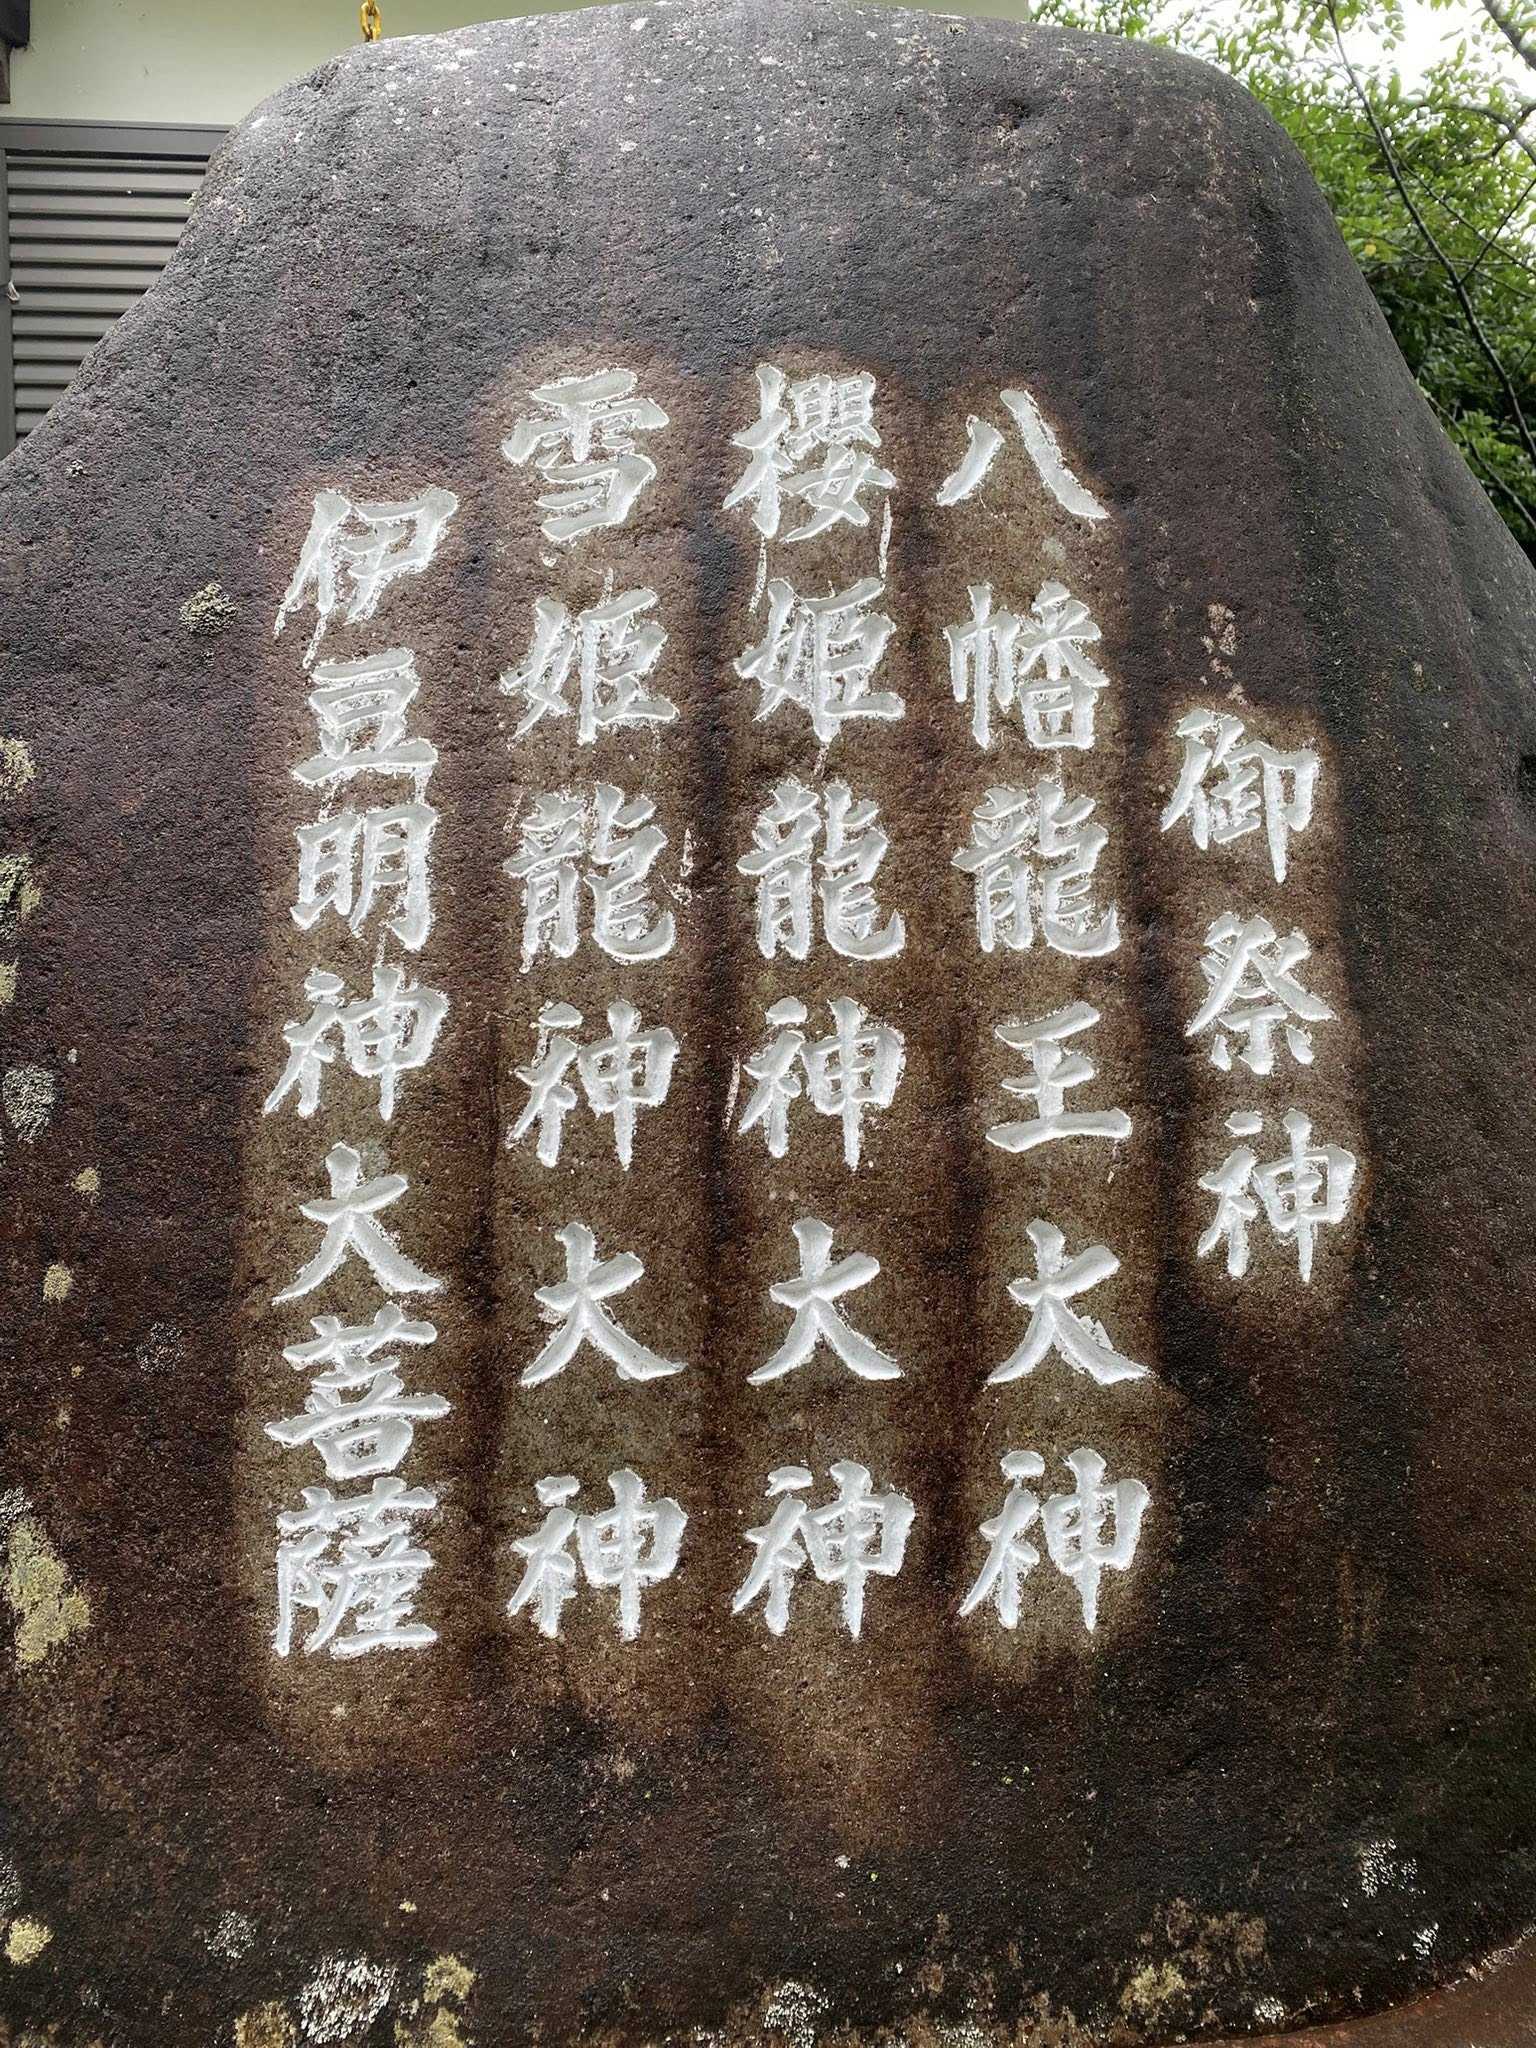 御祭神
八幡龍王大神
櫻姫龍神大神
雪姫龍神大神
伊豆明神大菩薩